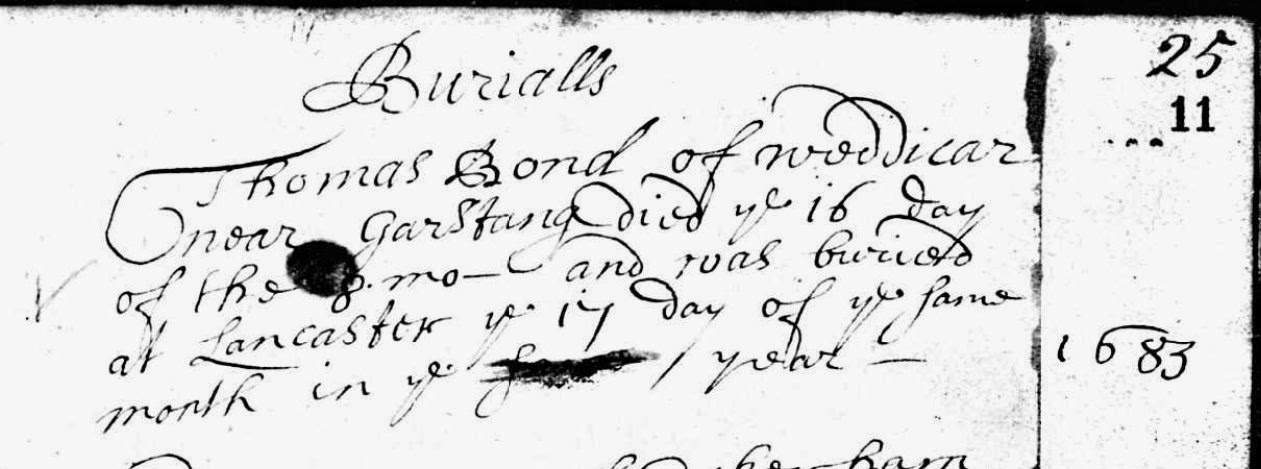 25
11
Burialls
Thomas Bond of weddicar
near Garstang died ye 16 day
of the 8 mo— and was buried
at Lancaster ye 17 day of ye same
month in ye year —
1683